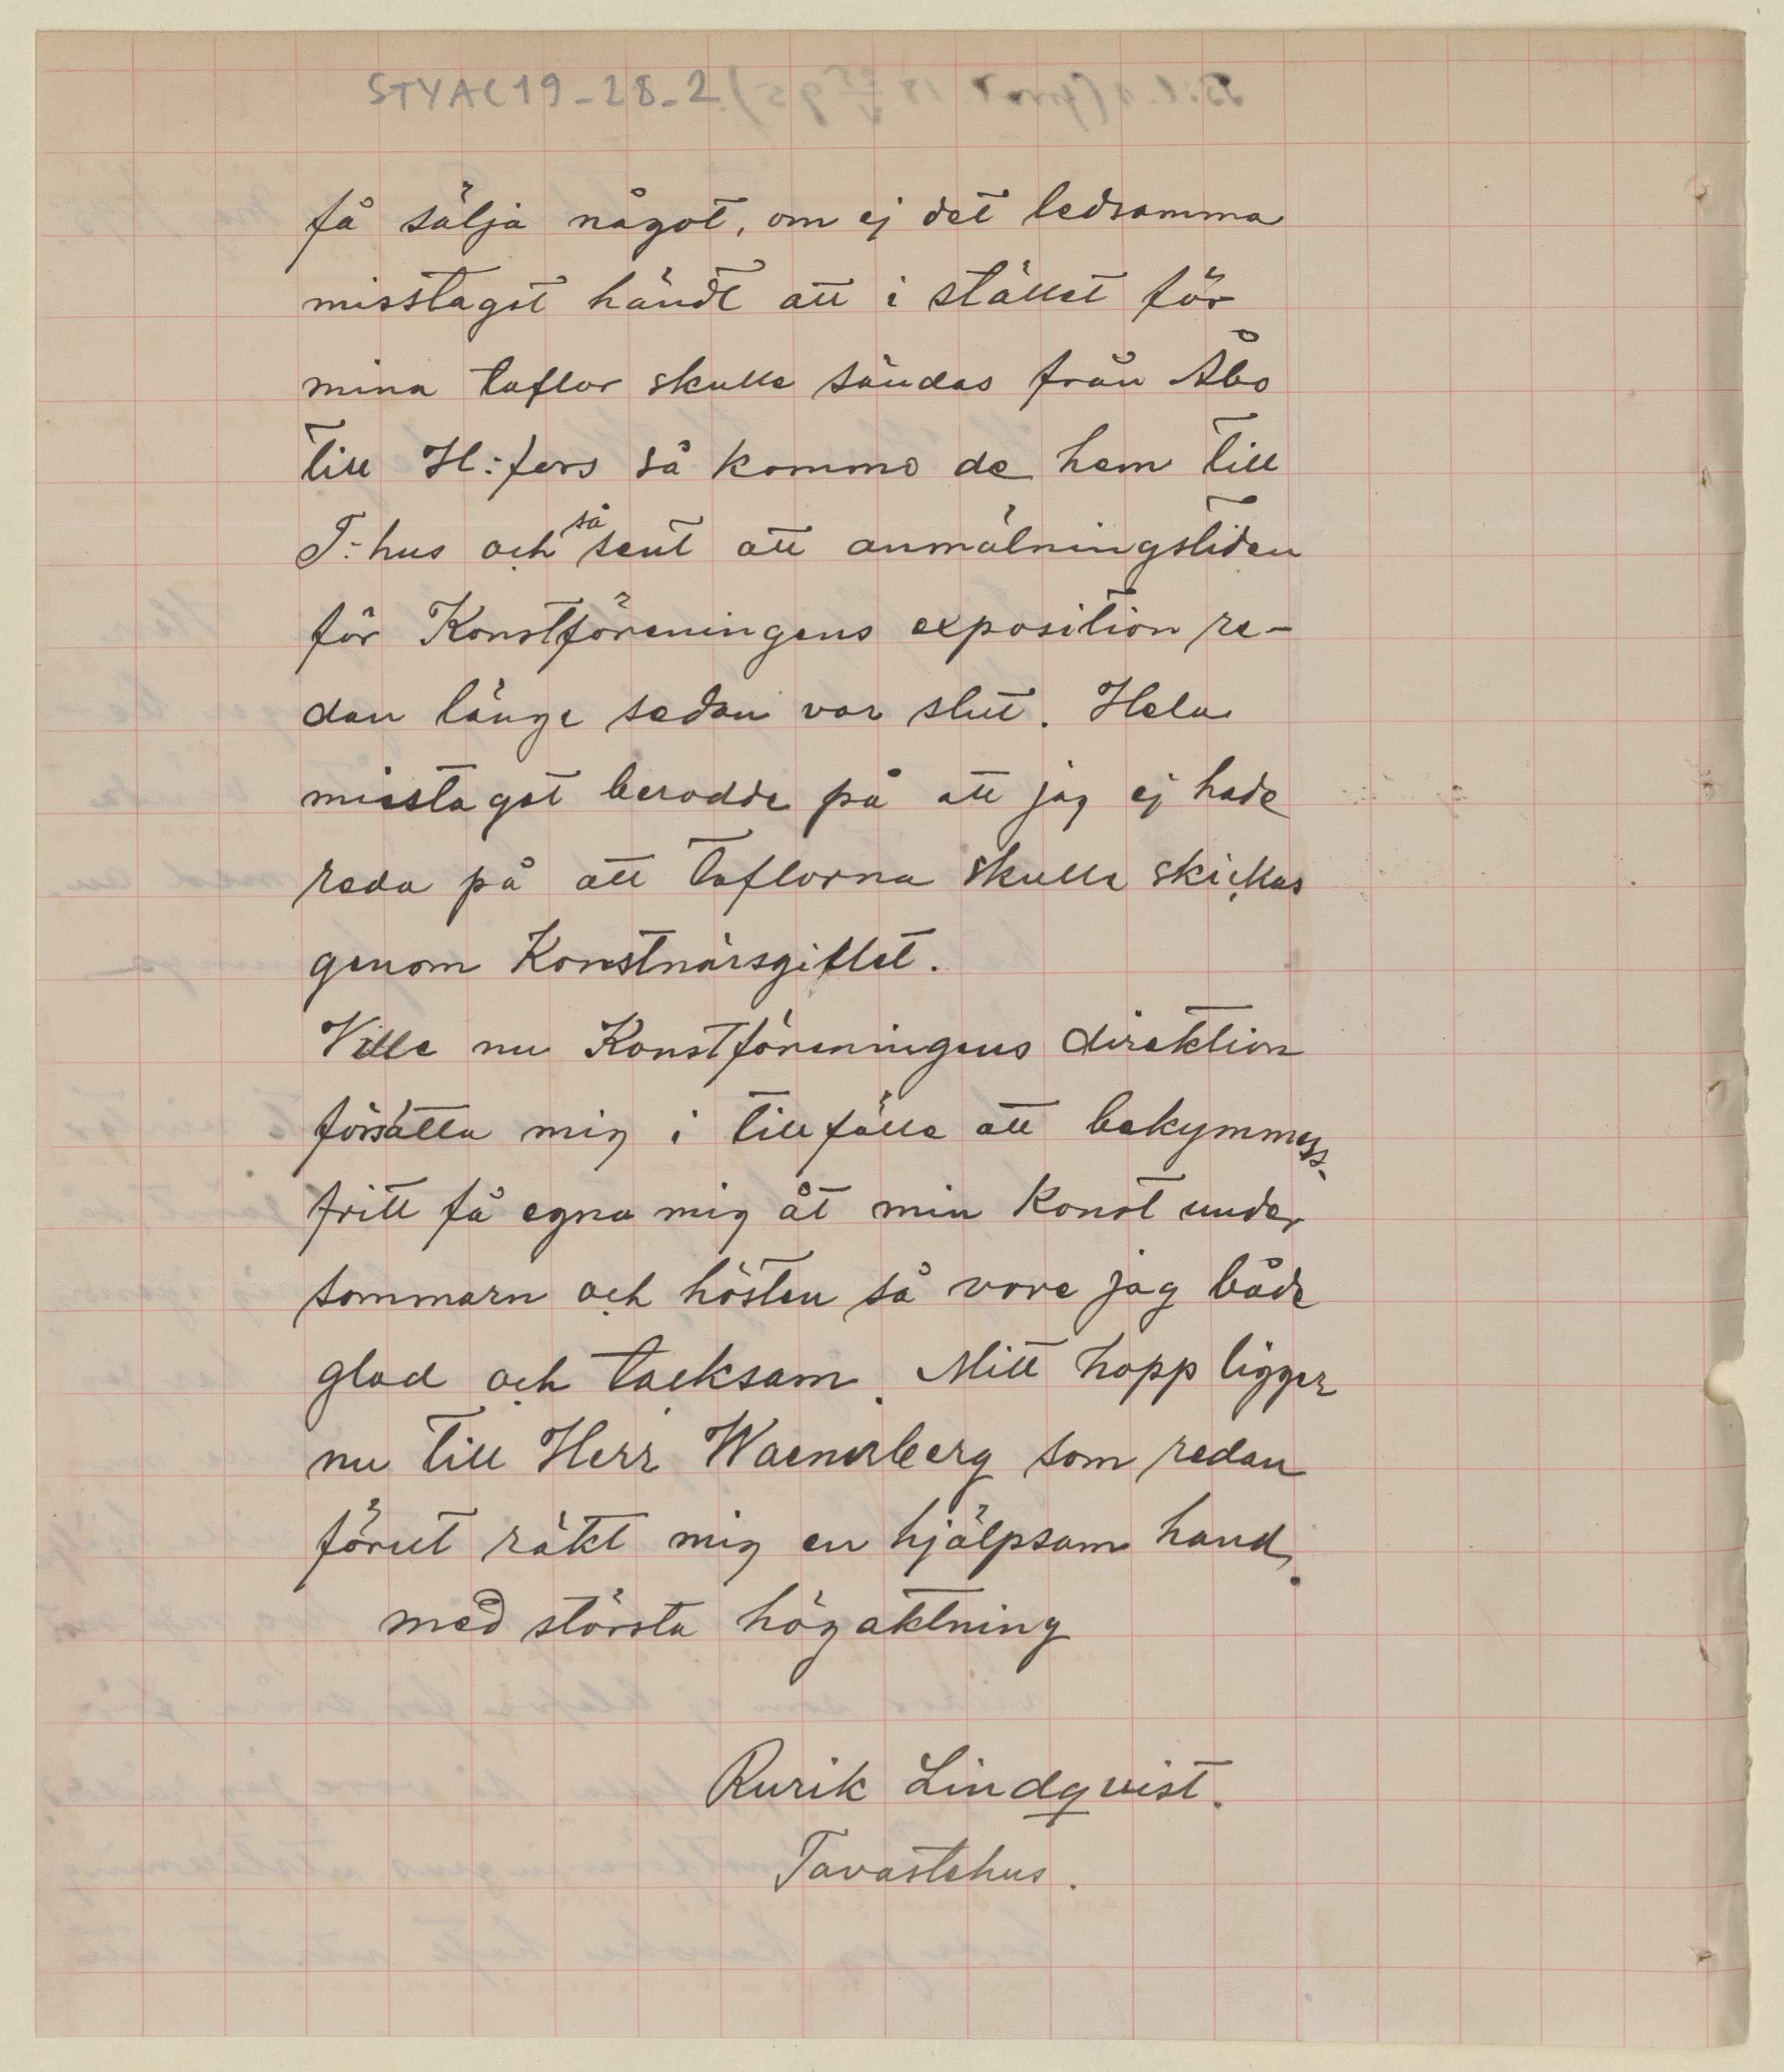 STYAC19-28-2
få sälja något, om ej det ledsamma
misstaget händt att i stället för
mina taflor skulle sändas från Åbo
till H:fors så kommo de hem till
T:hus och så sent att anmälningstiden
för Konstföreningens exposition re-
dan länge sedan var slut. Hela
misstaget berodde på att jag ej hade
reda på att taflorna skulle skickas
genom Konstnärsgillet.
Ville nu Konstföreningens direktion
försätta mig i tillfälle att bekymmers-
fritt få egna mig åt min Konst under
sommarn och hösten så vore jag både
glad och tacksam. Mitt hopp ligger
nu till Herr Waenerberg som redan
förut räkt mig en hjälpsam hand.
med största högaktning
Rurik Lindqvist.
Tavastehus.